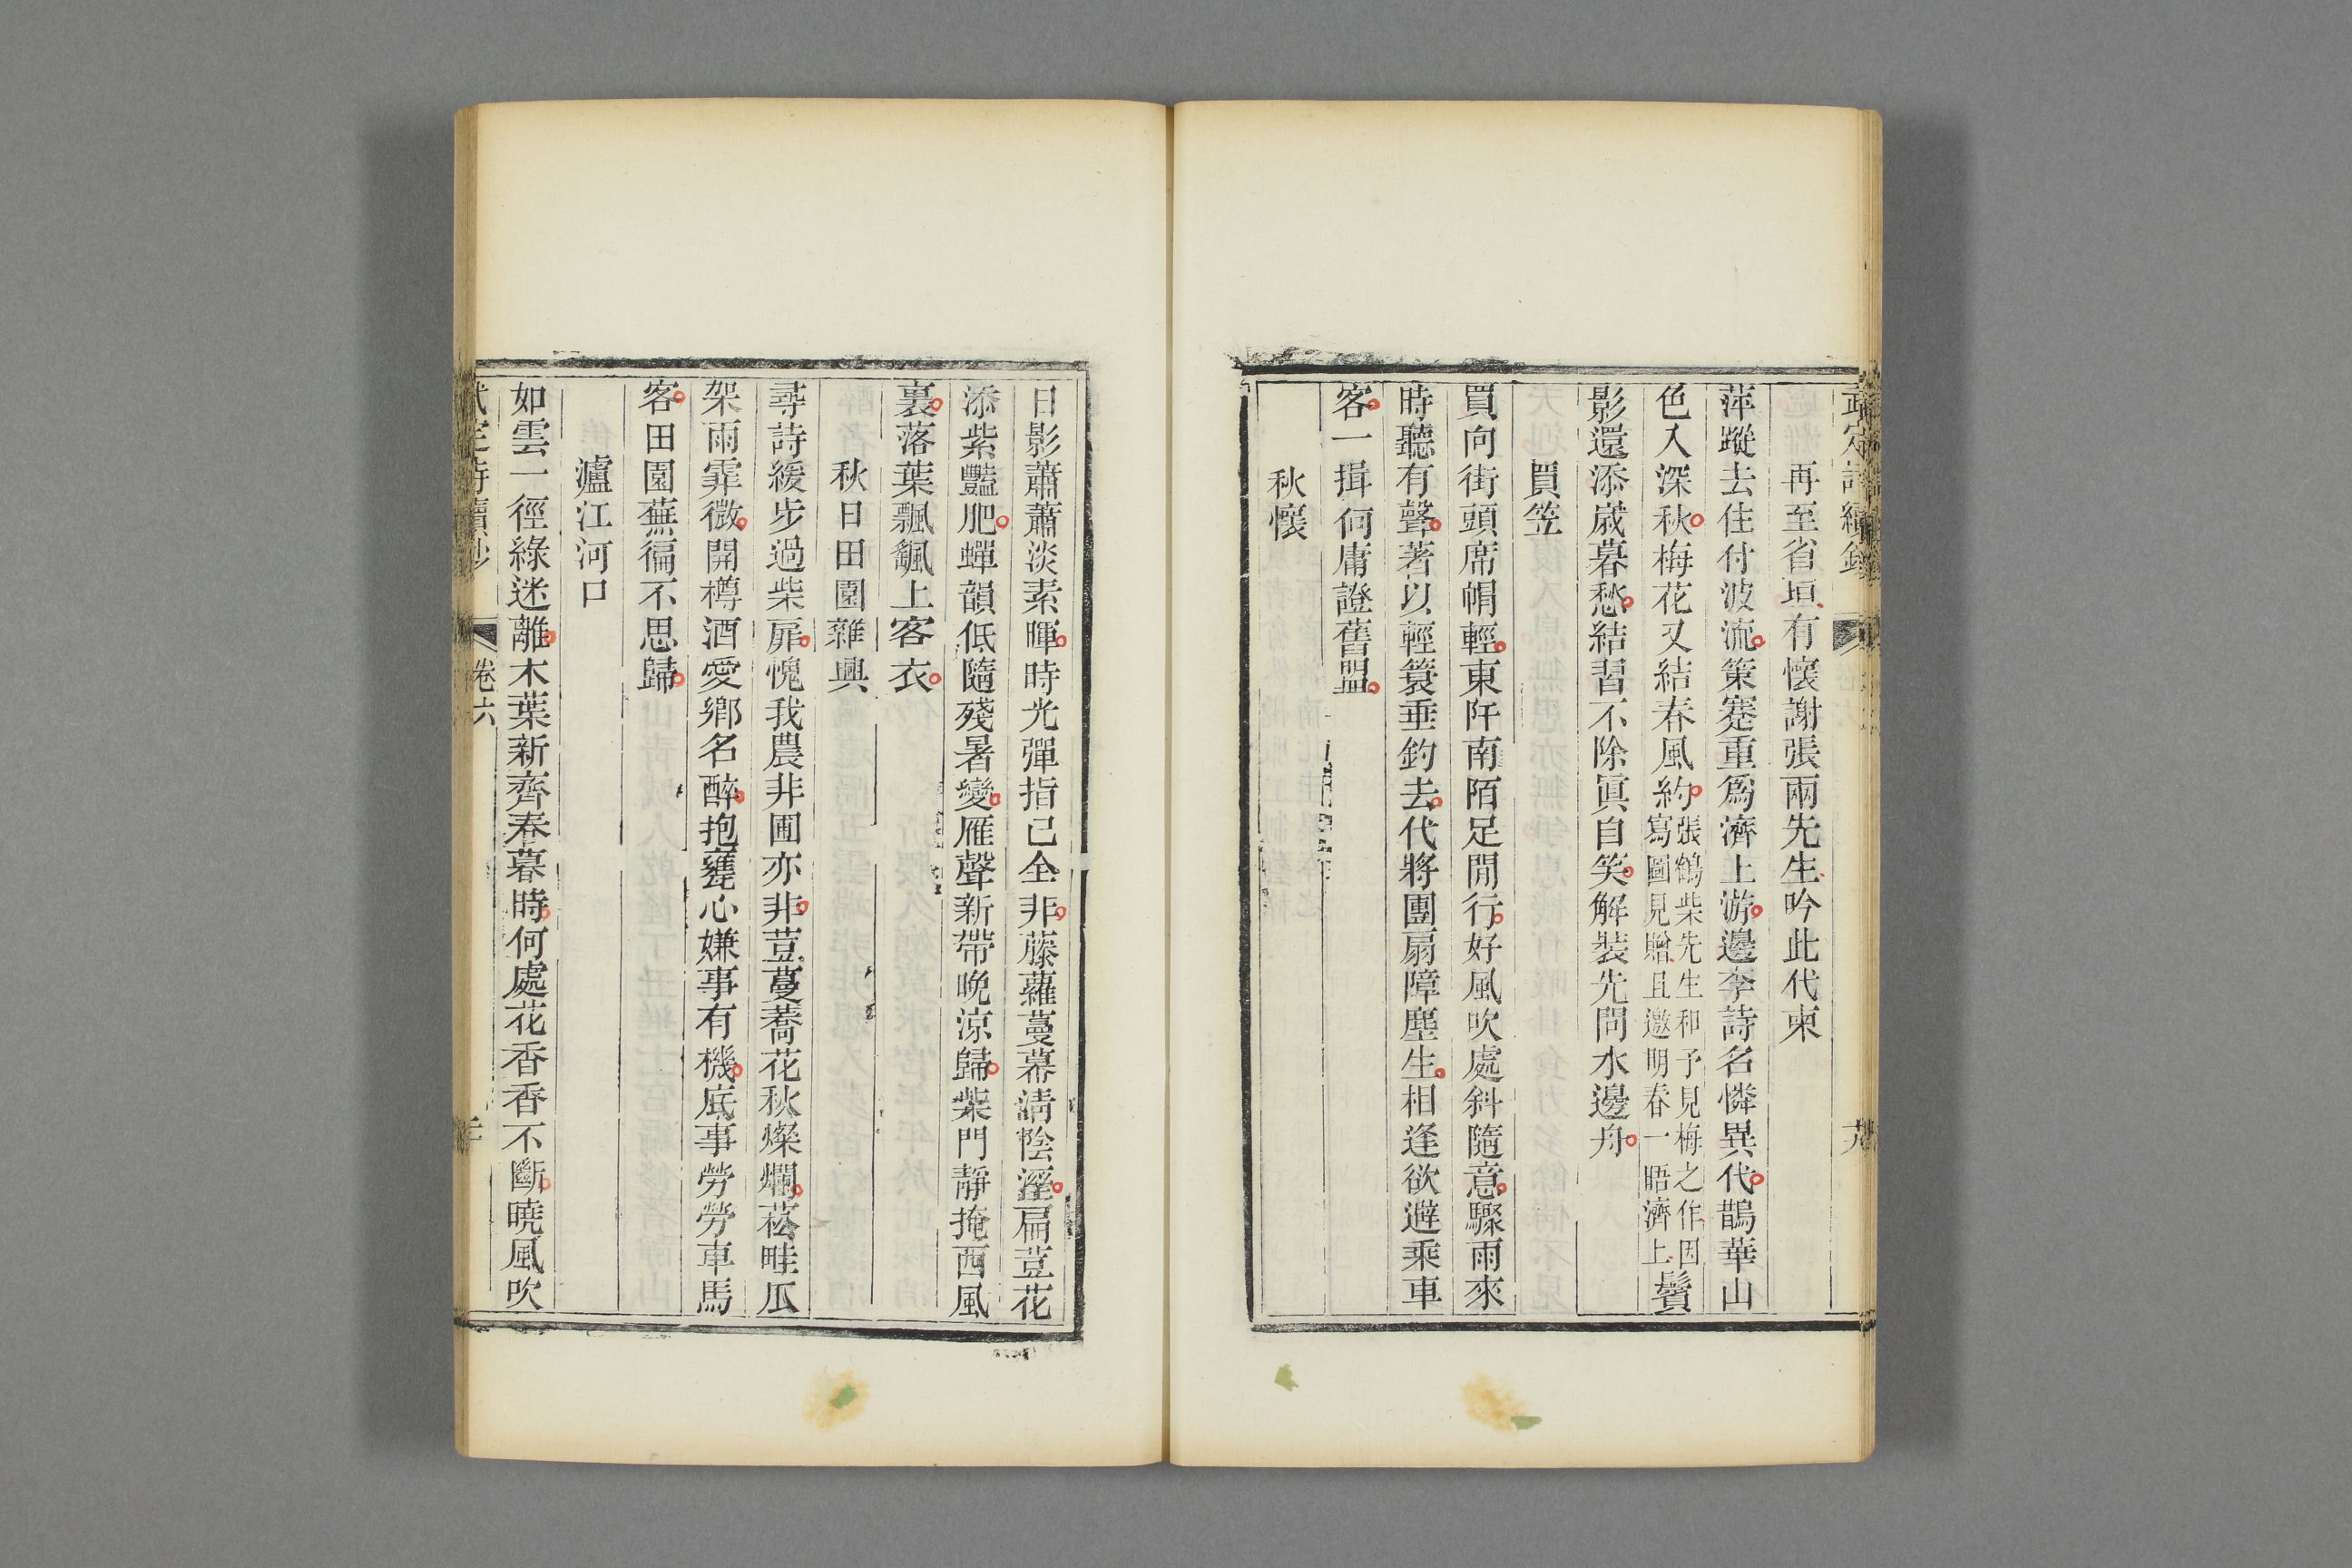 武定詩續鈔
再至省垣有懷謝張兩先生吟此代柬
萍蹤去住付波流策蹇重爲濟上游邊李詩名憐異代鵲華山
色入深秋梅花又結春風約張鶴柴先生和予見梅之作因寫圖見贈且邀明春一晤濟上鬢
影還添歲暮愁結習不除眞自笑解裝先問水邊舟
買笠
買向街頭席帽輕東阡南陌足閒行好風吹處斜隨意驟雨來
時聽有聲著以輕簑垂釣去代將團扇障塵生相逢欲避乘車
客一揖何庸證舊盟
秋懷
日影蕭蕭淡素暉時光彈指已全非藤蘿蔓幕淸陰溼扁荳花
添紫豔肥蟬韻低隨殘暑變雁聲新帶晚涼歸柴門靜掩西風
裏落葉飄颻上客衣
秋日田園雜興
尋詩緩步過柴扉愧我農非圃亦非荳蔓蕎花秋燦爛菘畦瓜
架雨霏微開樽酒愛鄉名醉抱甕心嫌事有機底事勞勞車馬
客田園蕪徧不思歸
瀘江河口
如雲一徑綠迷離木葉新齊春暮時何處花香香不斷曉風吹
武定詩續鈔 卷六